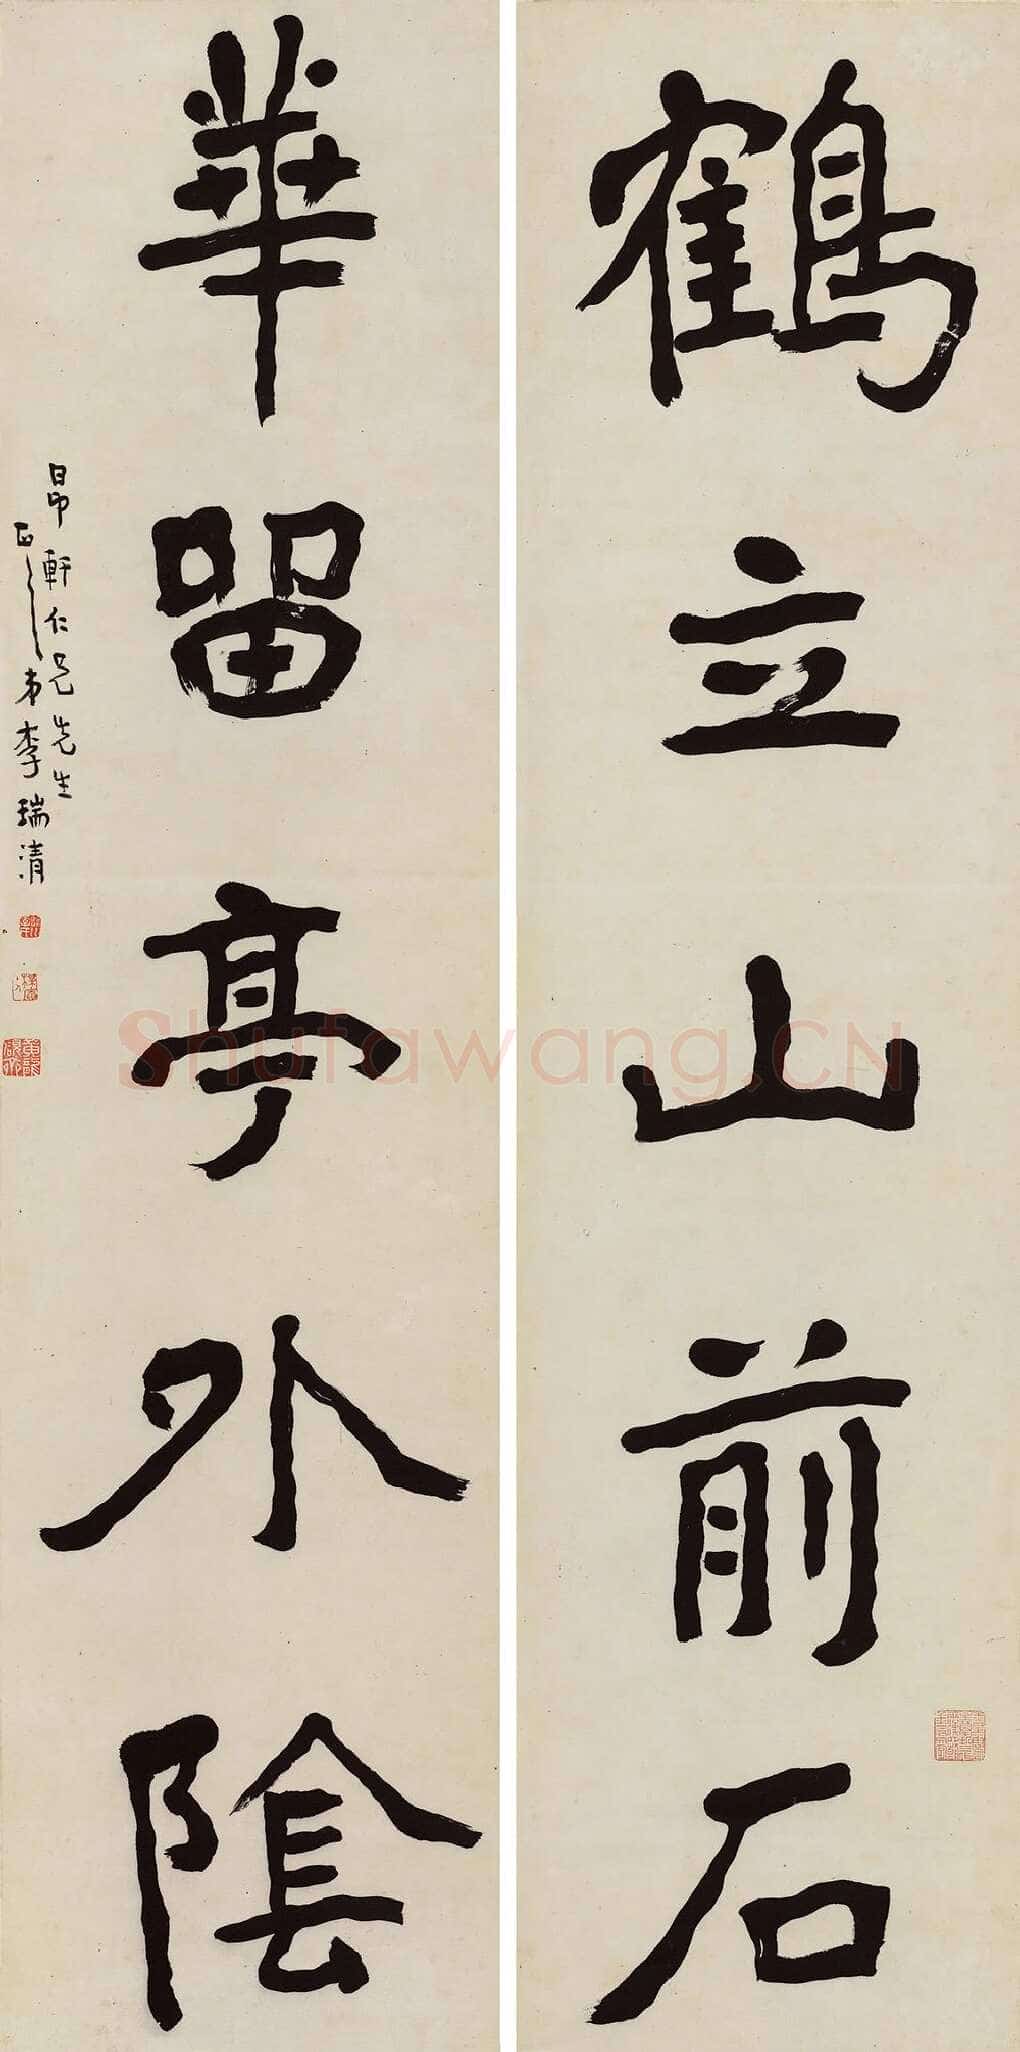 鶴立山前石
華留亭外陰
昂軒仁兄先生
正之弟李瑞清
Shufawang.CN